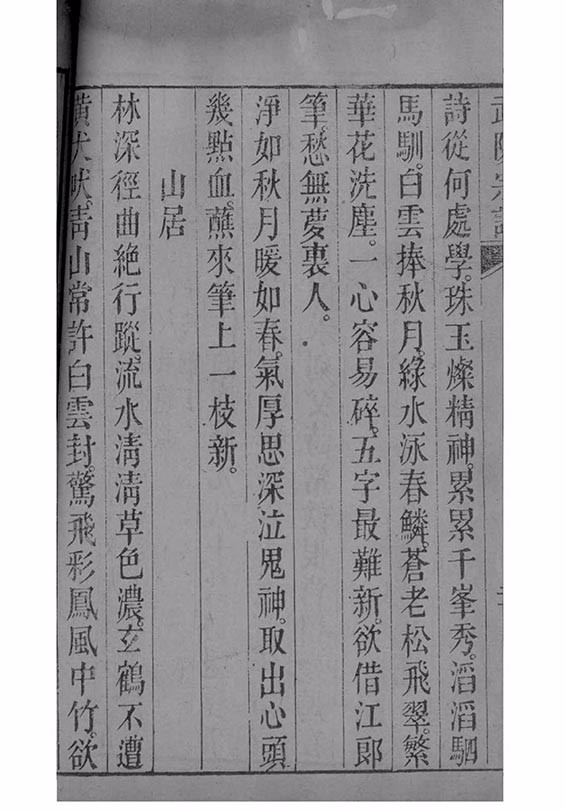 詩從何處學。珠玉燦精神。累累千峯秀。滔滔駟
馬馴。白雲捧秋月。綠水泳春鱗。蒼老松飛翠。繁
華花洗塵。一心容易碎。五字最難新。欲借江郎
筆。愁無夢裏人。
淨如秋月暖如春。氣厚思深泣鬼神。取出心頭
幾點血。蘸來筆上一枝新。
山居
林深徑曲絶行蹤。流水淸淸草色濃。玄鶴不遭
黃犬吠。靑山常許白雲封。驚飛彩鳳風中竹。欲